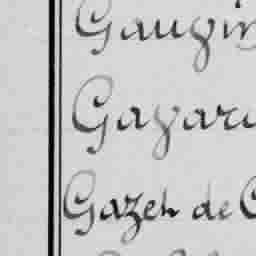 Gauvin
Gayaru
Gazel de C